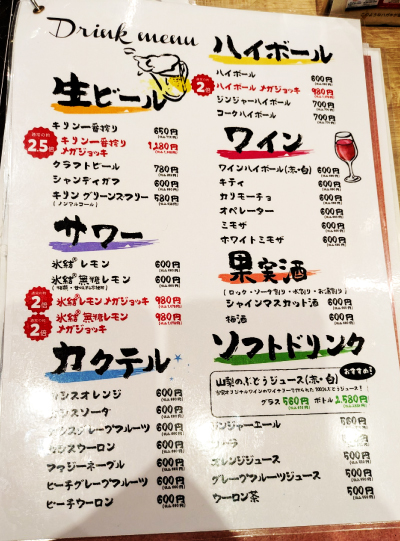 Drink menu
生ビール
キリン一番搾り 650円
2.5倍 キリン一番搾り メガジョッキ 1,180円
クラフトビール 780円
シャンディガフ 600円
キリン グリーンズフリー 580円
(ノンアルコール)
サワー
氷結®レモン 600円
氷結®無糖レモン 600円
2倍 氷結レモンメガジョッキ 980円
2倍 氷結®無糖レモン メガジョッキ 980円
カクテル
カシスオレンジ 600円
カシスソーダ 600円
カシスグレープフルーツ 600円
カシスウーロン 600円
ファジーネーブル 600円
ピーチグレープフルーツ 600円
ピーチウーロン 600円
ハイボール
ハイボール 600円
2倍 ハイボール メガジョッキ 980円
ジンジャーハイボール 700円
コークハイボール 700円
ワイン
ワインハイボール(赤・白) 600円
キティ 600円
カリモーチョ 600円
オペレーター 600円
ミモザ 600円
ホワイトミモザ 600円
果実酒
(ロック・ソーダ割り・水割り・お湯割り)
シャインマスカット酒 600円
梅酒 600円
ソフトドリンク
おすすめ!
山梨のぶどうジュース(赤・白)
グラス 560円 ボトル 2,580円
ジンジャーエール 560円
コーラ
オレンジジュース 500円
グレープフルーツジュース 500円
ウーロン茶 500円